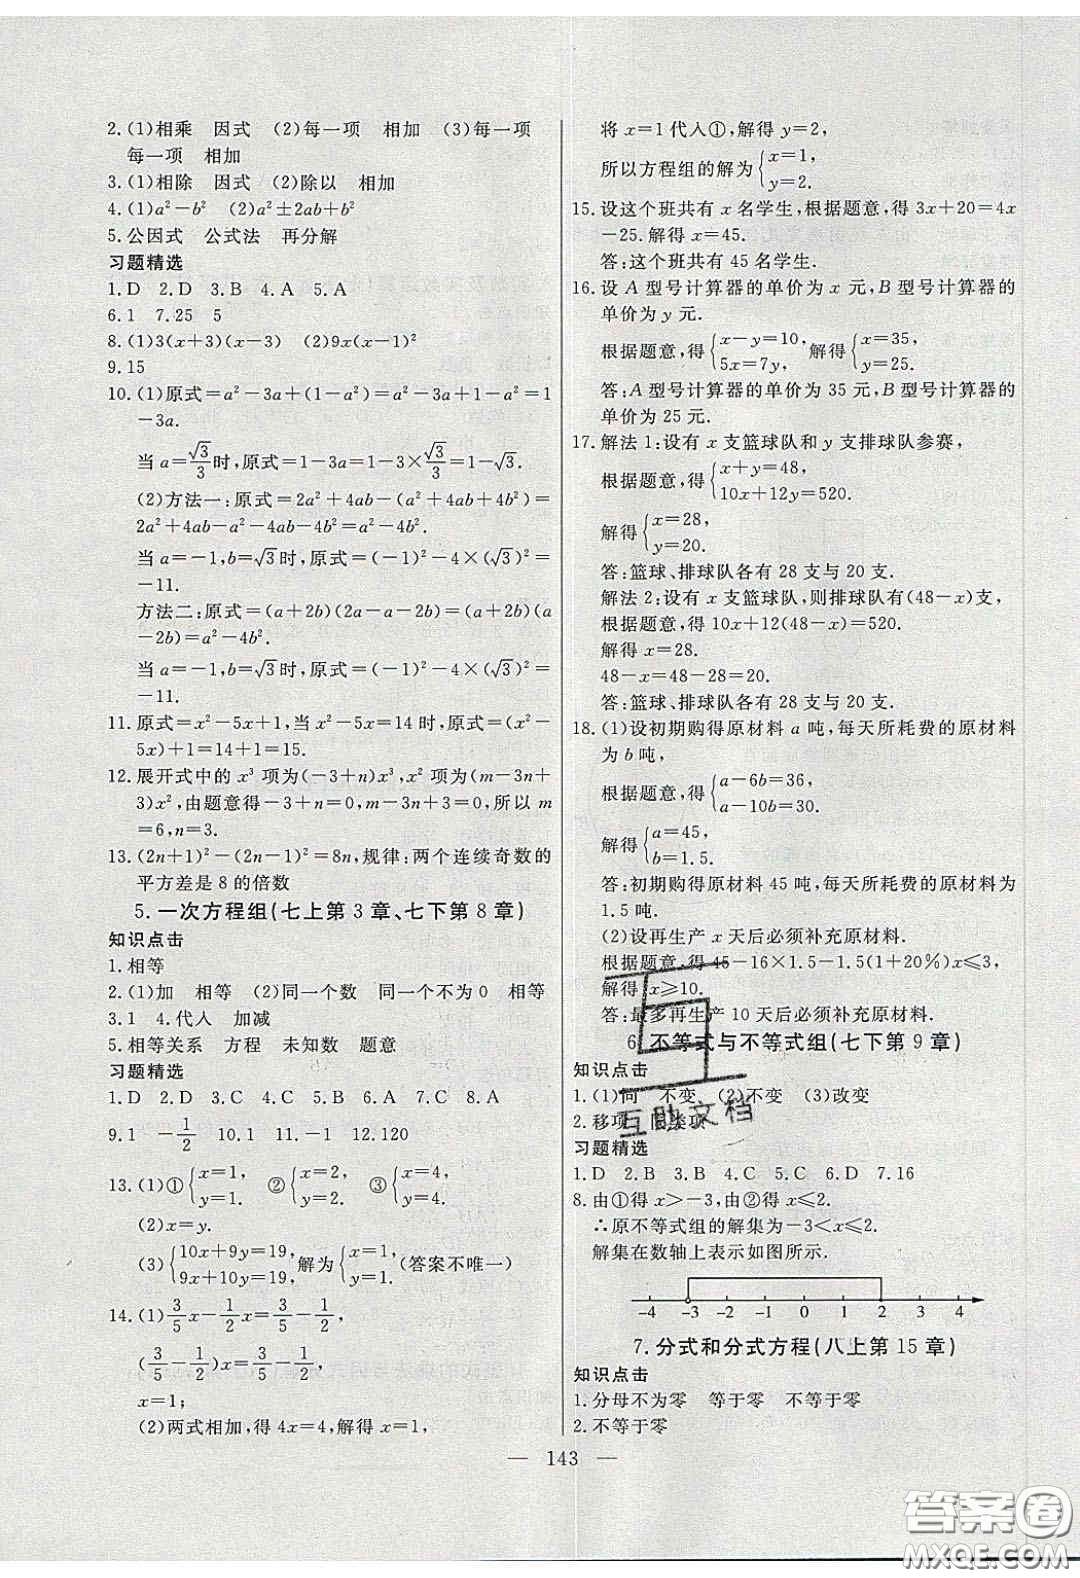 2.(1)相乘 因式 (2)每一项 相加 (3)每一项
每一项 相加
3.(1)相除 因式 (2)除以 相加
4.(1)a²-b² (2)a²±2ab+b²
5.公因式 公式法 再分解
习题精选
1.D 2.D 3.B 4.A 5.A
6.1 7.25 5
8.(1)3(x+3)(x-3) (2)9x(x-1)²
9.15
10.(1)原式=a²-3a+(1-a²)=a²-3a+1-a²=1
-3a.
当a=√3/3时,原式=1-3a=1-3×√3/3=1-√3.
(2)方法一:原式=2a²+4ab-(a²+4ab+4b²)=
2a²+4ab-a²-4ab-4b²=a²-4b².
当a=-1,b=√3时,原式=(-1)²-4×(√3)²=
-11.
方法二:原式=(a+2b)(2a-a-2b)=(a+2b)(a
-2b)=a²-4b².
当a=-1,b=√3时,原式=(-1)²-4×(√3)²=
-11.
11.原式=x²-5x+1,当x²-5x=14时,原式=(x²-
5x)+1=14+1=15.
12.展开式中的x³项为(-3+n)x³,x²项为(m-3n+
3)x²,由题意得-3+n=0,m-3n+3=0,所以m
=6,n=3.
13.(2n+1)²-(2n-1)²=8n,规律:两个连续奇数的
平方差是8的倍数
5.一次方程组(七上第3章、七下第8章)
知识点击
1.相等
2.(1)加 相等 (2)同一个数 同一个不为0 相等
3.1 4.代入 加减
5.相等关系 方程 未知数 题意
习题精选
1.D 2.D 3.C 4.B 5.D 6.A 7.C 8.A
9.1 -1/2 10.1 11.-1 12.120
13.(1)①{x=1, y=1. ②{x=2, y=2. ③{x=4, y=4.
(2)x=y.
(3){10x+9y=19, 9x+10y=19, 解为{x=1, y=1. (答案不唯一)
14.(1)3/5x-1/2x=3/5-1/2,
(3/5-1/2)x=3/5-1/2,
x=1;
(2)两式相加,得4x=4,解得x=1,
将x=1代入①,解得y=2,
所以方程组的解为{x=1, y=2.
15.设这个班共有x名学生,根据题意,得3x+20=4x
-25.解得x=45.
答:这个班共有45名学生.
16.设A型号计算器的单价为x元,B型号计算器的
单价为y元.
根据题意,得{x-y=10, 5x=7y, 解得{x=35, y=25.
答:A型号计算器的单价为35元,B型号计算器的
单价为25元.
17.解法1:设有x支篮球队和y支排球队参赛,
根据题意,得{x+y=48, 10x+12y=520.
解得{x=28, y=20.
答:篮球、排球队各有28支与20支.
解法2:设有x支篮球队,则排球队有(48-x)支,
根据题意,得10x+12(48-x)=520.
解得x=28.
48-x=48-28=20.
答:篮球、排球队各有28支与20支.
18.(1)设初期购得原材料a吨,每天所耗费的原材料
为b吨,
根据题意,得{a-6b=36, a-10b=30.
解得{a=45, b=1.5.
答:初期购得原材料45吨,每天所耗费的原材料为
1.5吨.
(2)设再生产x天后必须补充原材料.
根据题意,得45-16×1.5-1.5(1+20%)x≤3,
解得x≥10.
答:最多再生产10天后必须补充原材料.
6.不等式与不等式组(七下第9章)
知识点击
1.(1)同 不变 (2)不变 (3)改变
2.移项 同类项
习题精选
1.D 2.B 3.B 4.C 5.C 6.D 7.16
8.由①得x>-3,由②得x≤2.
∴原不等式组的解集为-3<x≤2.
解集在数轴上表示如图所示.
-4 -3 -2 -1 0 1 2 3 4
7.分式和分式方程(八上第15章)
知识点击
1.分母不为零 等于零 不等于零
2.不等于零
— 143 —
互助文档
答案圈
MXQE.COM